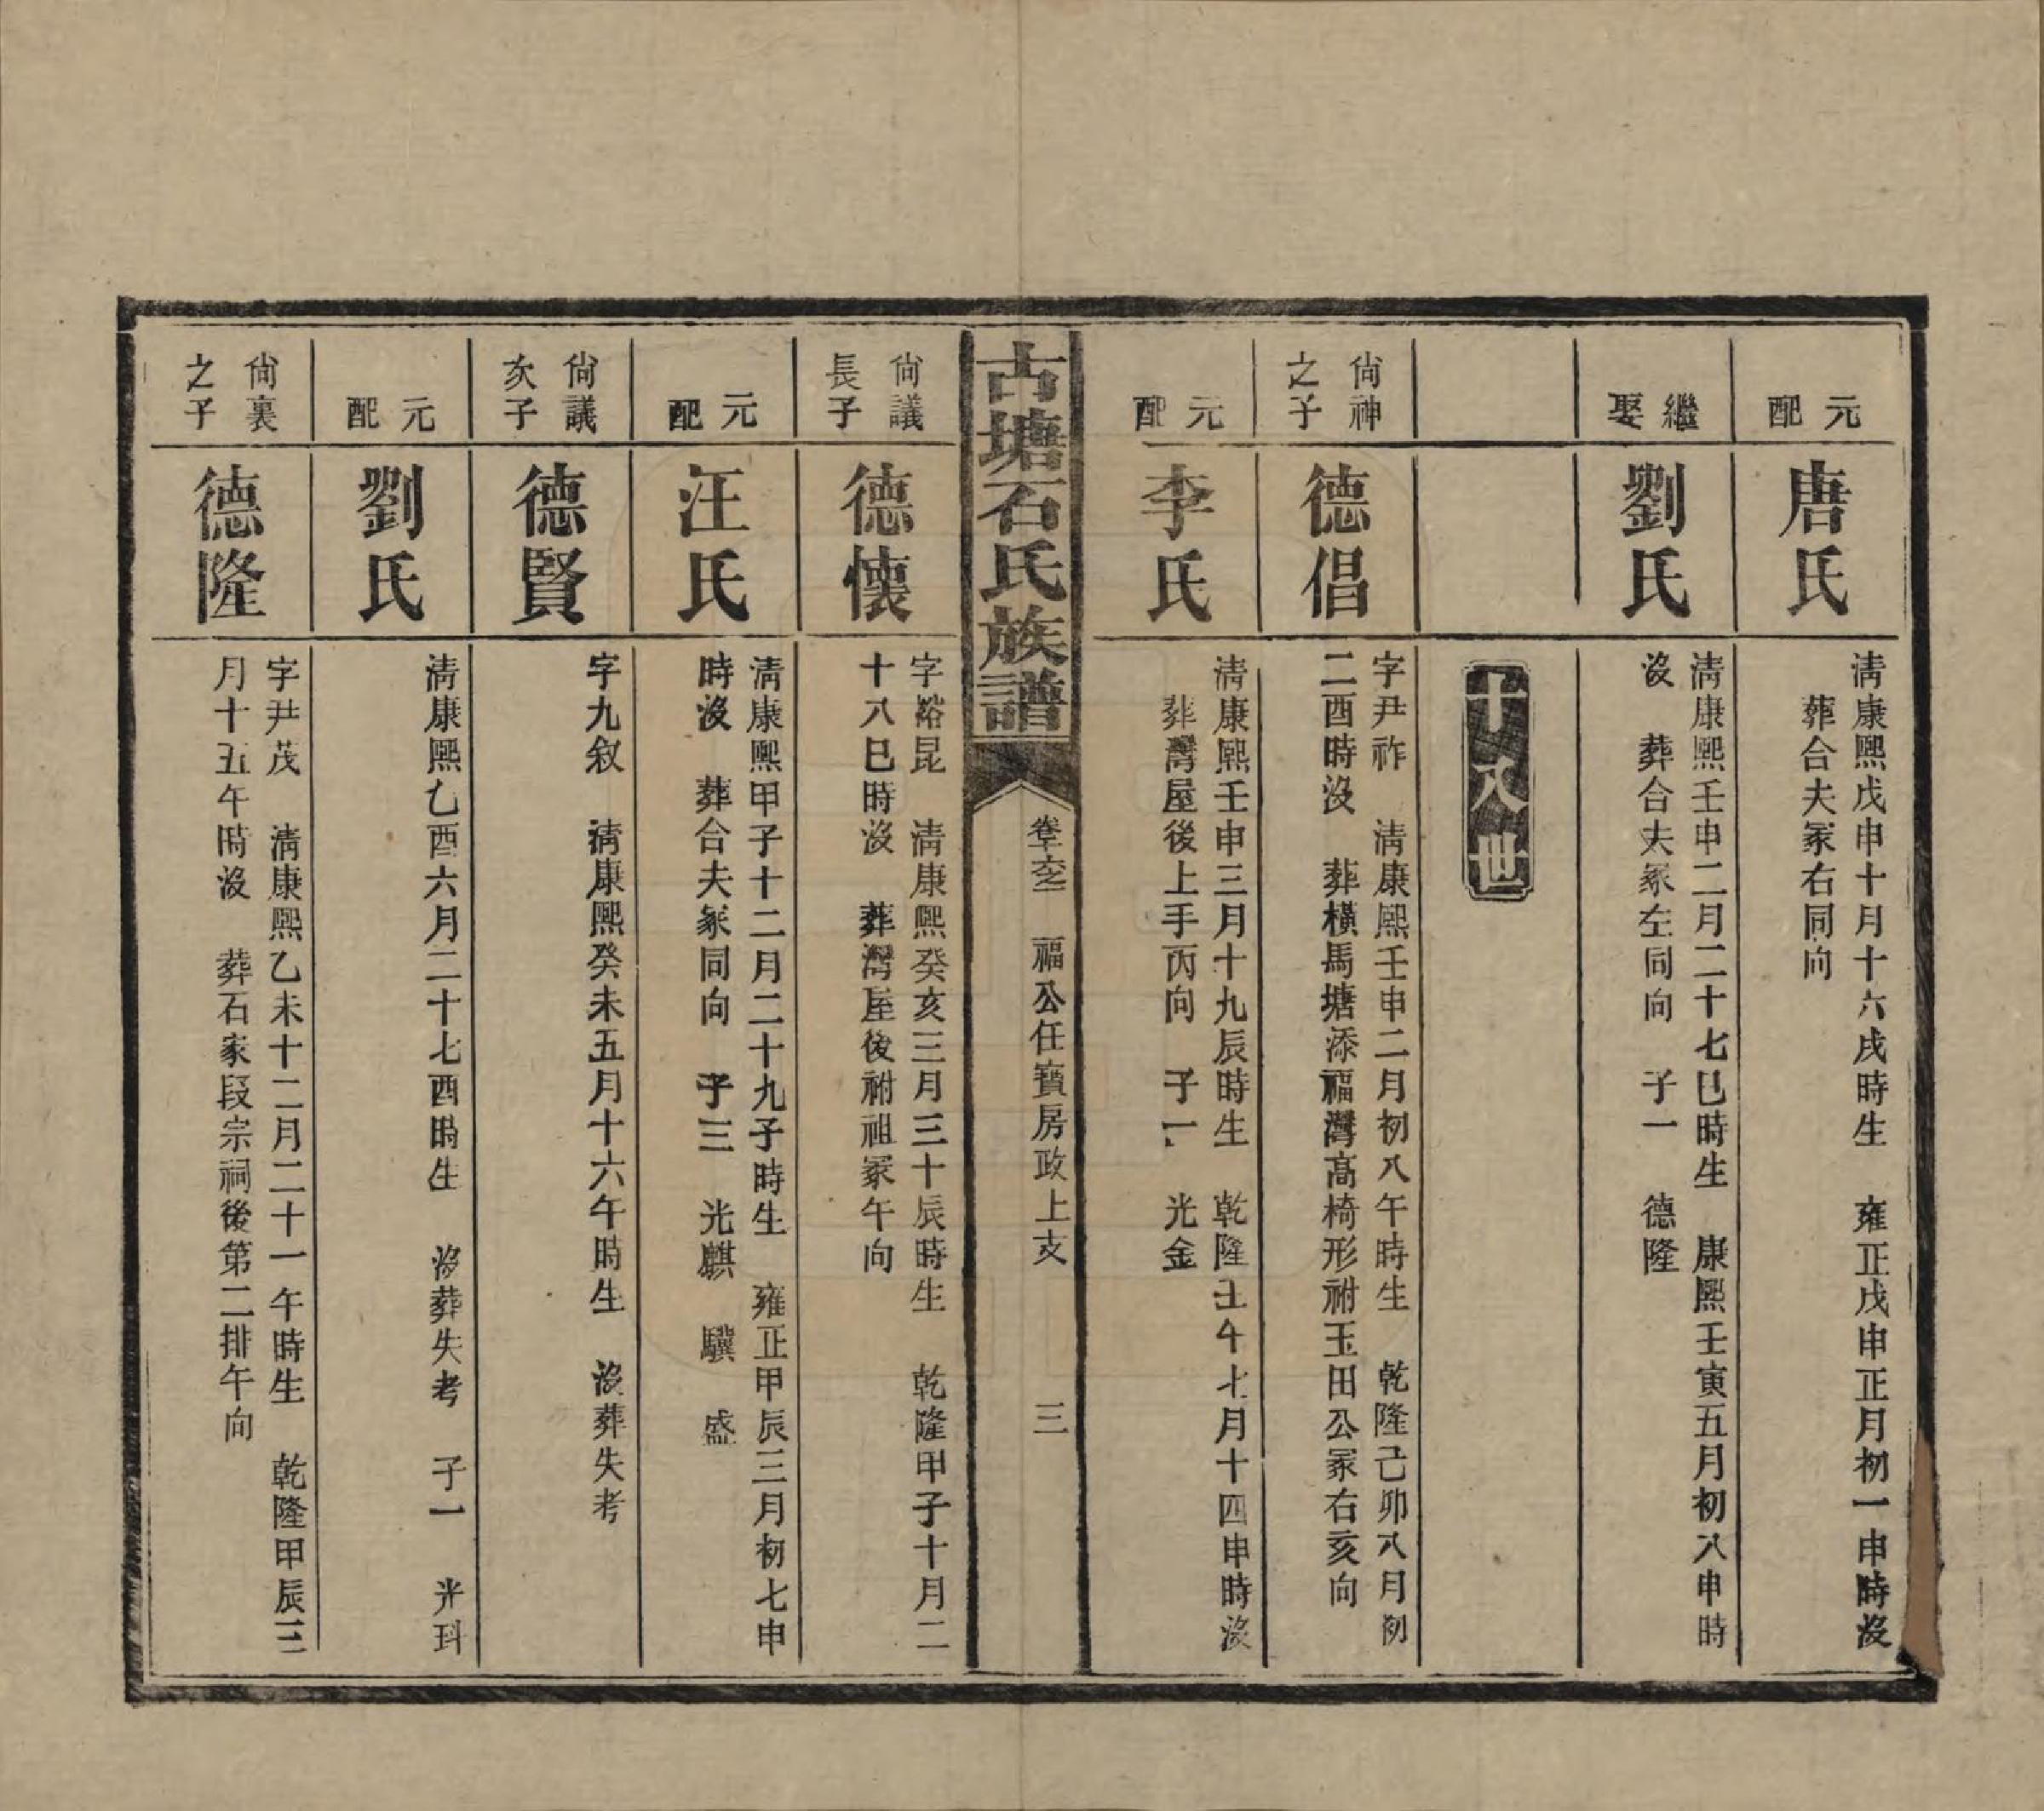 元配
唐氏
清康熙戊申十月十六戌時生　雍正戊申正月初一申時沒
葬合夫冢右同向
繼娶
劉氏
清康熙壬申二月二十七巳時生　康熙壬寅五月初八申時
沒　葬合夫冢左同向　子一　德隆
十八世
尙神
之子
德倡
字尹祚　清康熙壬申二月初八午時生　乾隆己卯八月初
二酉時沒　葬橫馬塘添福灣高椅形祔玉田公冢右亥向
元配
李氏
清康熙壬申三月十九辰時生　乾隆壬午七月十四申時沒
葬灣屋後上手丙向　子一　光金
古塘石氏族譜
卷六之一　福公任寶房政上支　三
尙議
長子
德懷
字谿昆　清康熙癸亥三月三十辰時生　乾隆甲子十月二
十八巳時沒　葬灣屋後祔祖冢午向
元配
汪氏
清康熙甲子十二月二十九子時生　雍正甲辰三月初七申
時沒　葬合夫冢同向　子三　光麒　驥　盛
尙議
次子
德賢
字九叙　清康熙癸未五月十六午時生　沒葬失考
元配
劉氏
清康熙乙酉六月二十七酉時生　沒葬失考　子一　光㺵
尙裏
之子
德隆
字尹茂　清康熙乙未十二月二十一午時生　乾隆甲辰三
月十五午時沒　葬石家段宗祠後第二排午向